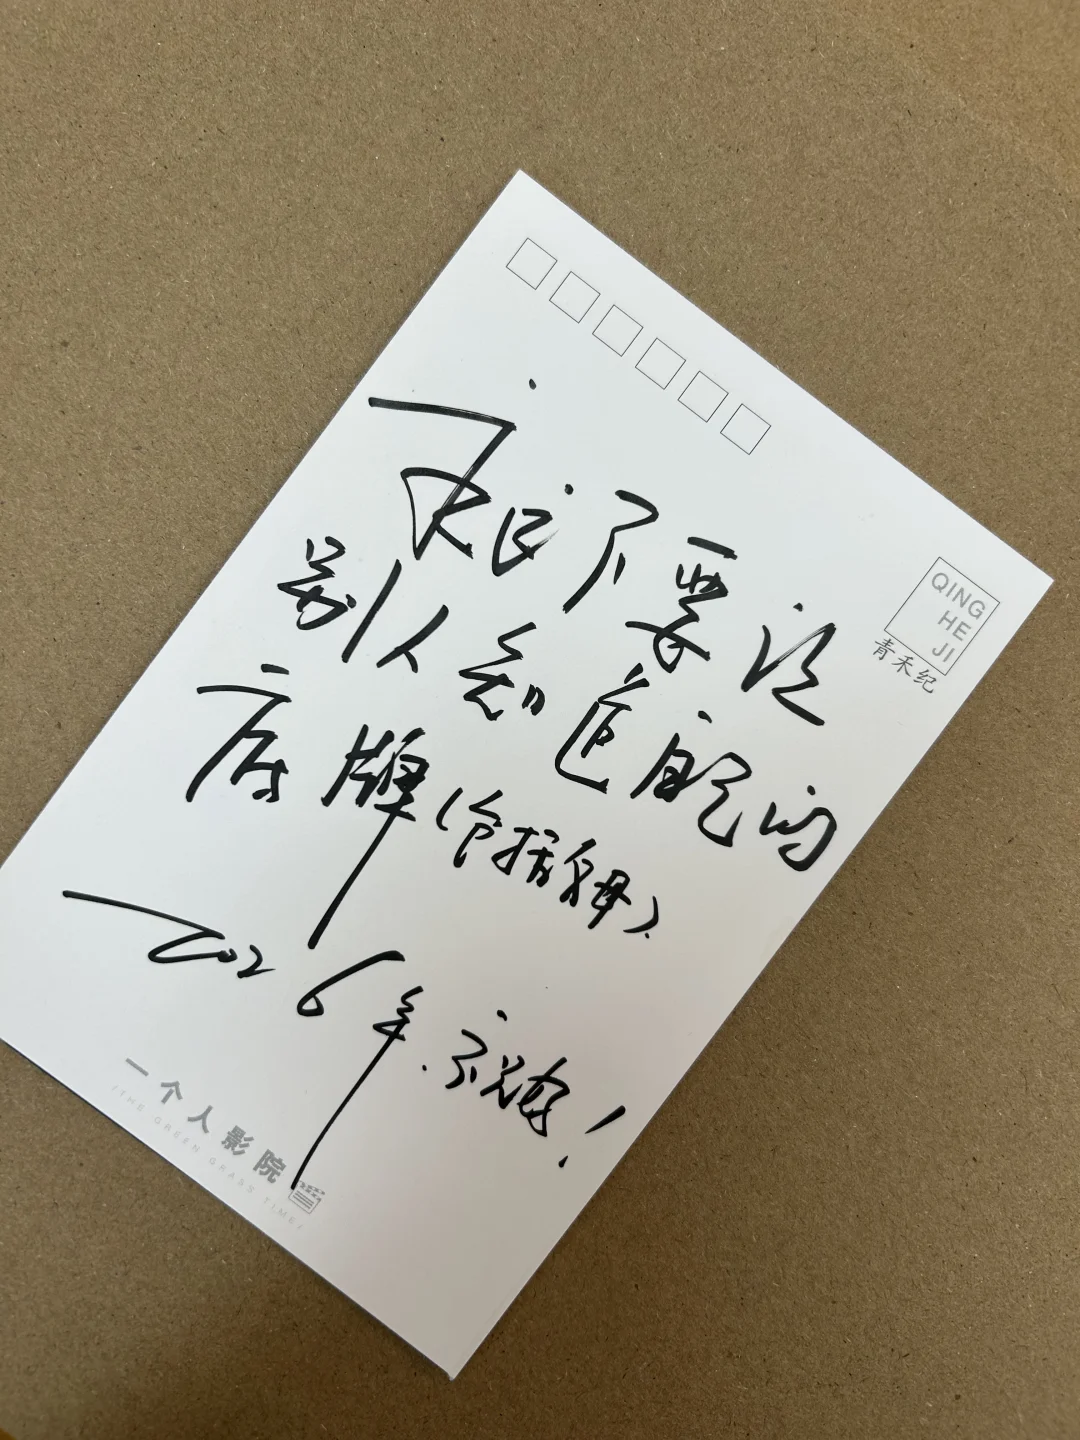 QING
HE
JI
青禾纪
永不要让
别人知道自己的
底牌(包括母)
—2026年.祝好!
一个人影院
(THE GREEN GRASS TIME)